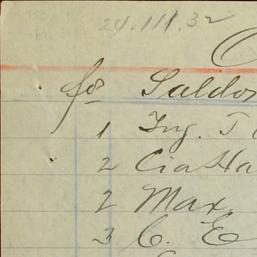 24.111.32
fo Saldo
1 Ing. T
2 Cia Ha
2 Max
3 C. E